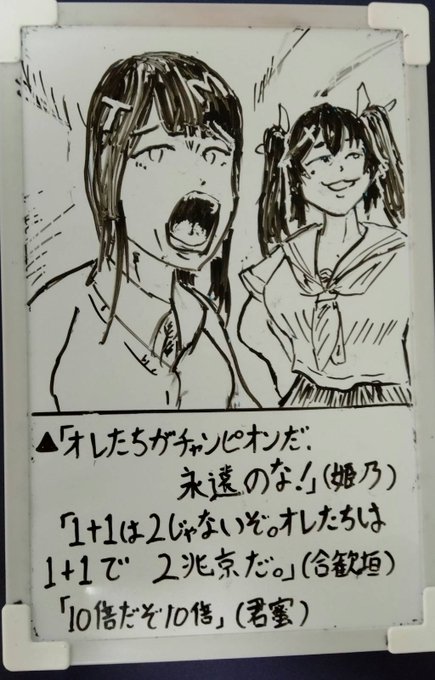 ▲「オレたちがチャンピオンだ、
永遠のな!」(姫乃)
「1+1は2じゃないぞ。オレたちは
1+1で 2兆京だ。」(合歓垣)
「10倍だぞ10倍」(君蜜)